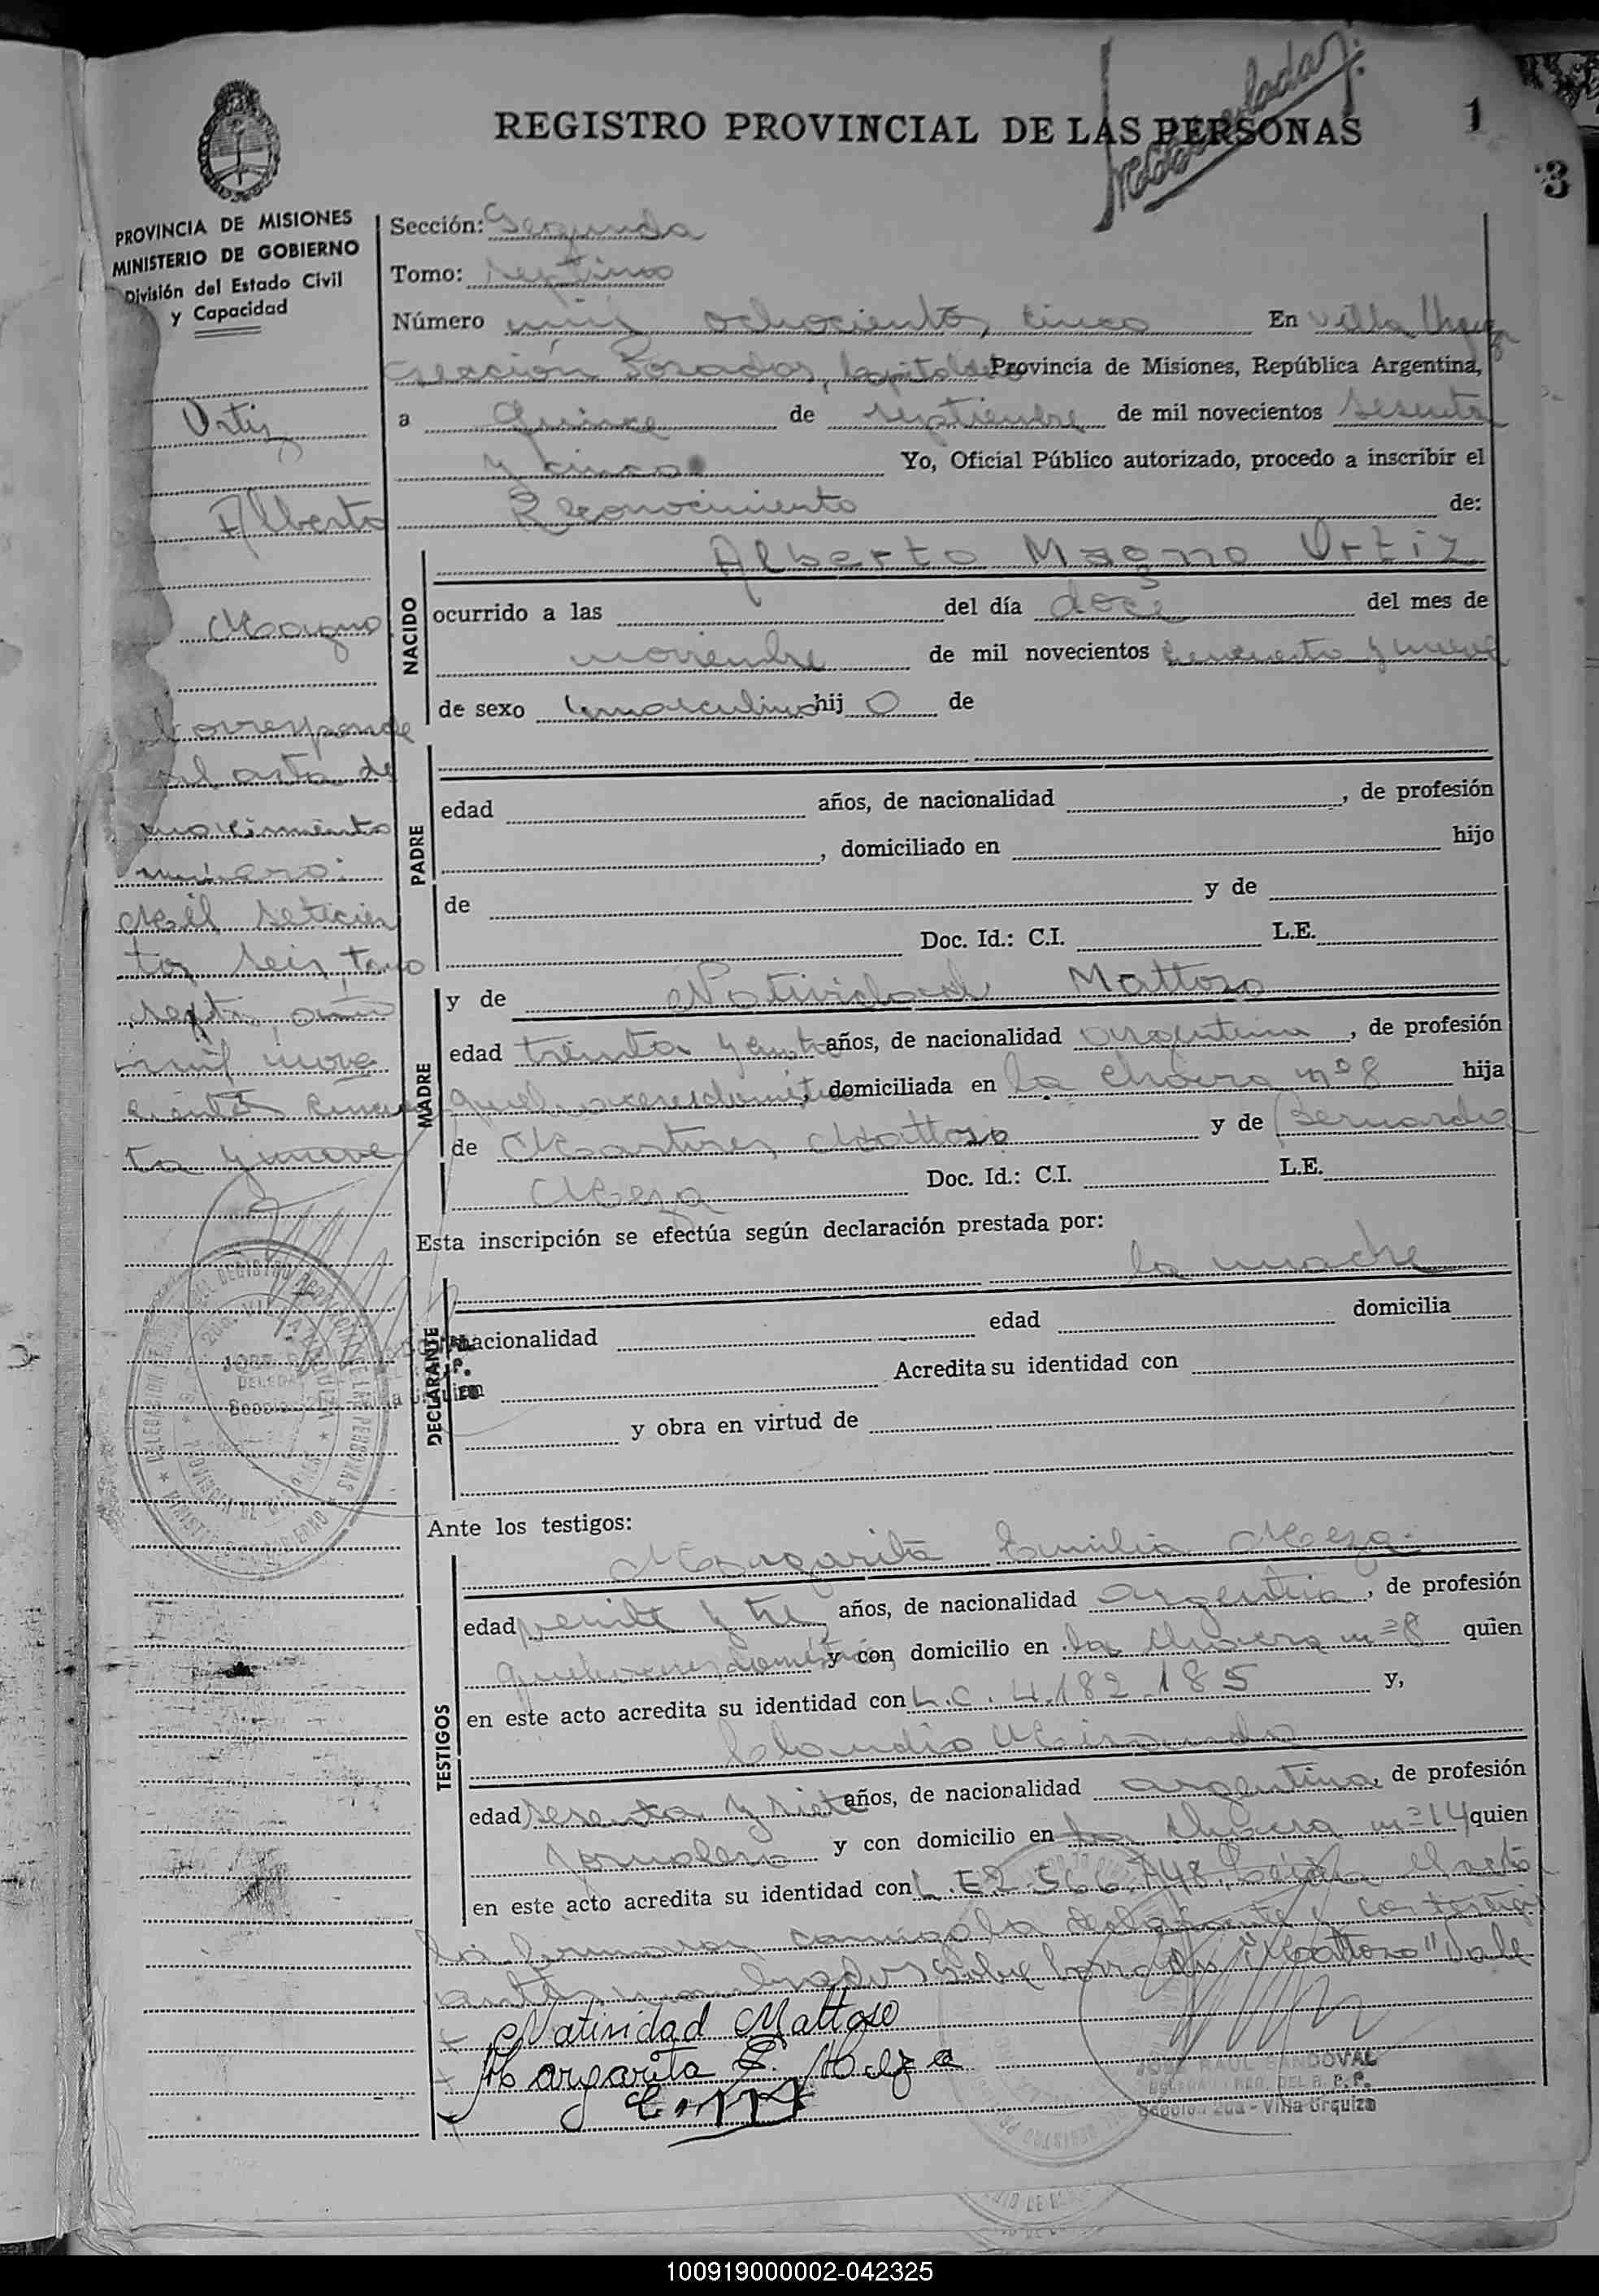 REGISTRO PROVINCIAL DE LAS PERSONAS
1
3
PROVINCIA DE MISIONES
MINISTERIO DE GOBIERNO
División del Estado Civil
y Capacidad
Ortiz
Alberto
Magno
Corresponde
al acta de
nacimiento
número:
Mil setecien
tos seis tomo
septi año
mil nove
cientos cincuen
ta y nueve
Sección: Segunda
Tomo: septimo
Número mil ochocientos cinco En Villa Urquiza
Sección Posadas, Capital de la Provincia de Misiones, República Argentina,
a Quince de septiembre de mil novecientos sesenta
y cinco Yo, Oficial Público autorizado, procedo a inscribir el
Reconocimiento de:
NACIDO
Alberto Magno Ortiz
ocurrido a las del día doce del mes de
noviembre de mil novecientos cincuenta y nueve
de sexo masculino hijo de
PADRE
edad años, de nacionalidad , de profesión
, domiciliado en hijo
de y de
Doc. Id.: C.I. L.E.
MADRE
y de Natividad Mattoso
edad treinta y años, de nacionalidad argentina, de profesión
quehaceres domésticos, domiciliada en la chacra nº 8 hija
de Mattoso y de Bernarda
Meza Doc. Id.: C.I. L.E.
Esta inscripción se efectúa según declaración prestada por:
la madre
DECLARANTE
nacionalidad edad domicilia
en Acredita su identidad con
y obra en virtud de
Ante los testigos:
TESTIGOS
Margarita Emilia Meza
edad veinte y tres años, de nacionalidad argentina, de profesión
quehaceres domésticos y con domicilio en la chacra nº 8 quien
en este acto acredita su identidad con L.C. 4.182.185 y,
Claudio Miranda
edad sesenta y siete años, de nacionalidad argentina, de profesión
jornalero y con domicilio en la chacra nº 14 quien
en este acto acredita su identidad con L.E 2.566.748. Leida el acta
la firmaron conmigo la declarante y los testigos
antes nombrados Sobre borrado: "Mattoso" Vale
Natividad Mattoso
Margarita E. Meza
JOSE RAUL SANDOVAL
DELEGADO REG. DEL R. P. P.
Sección 2da - Villa Urquiza
100919000002-042325